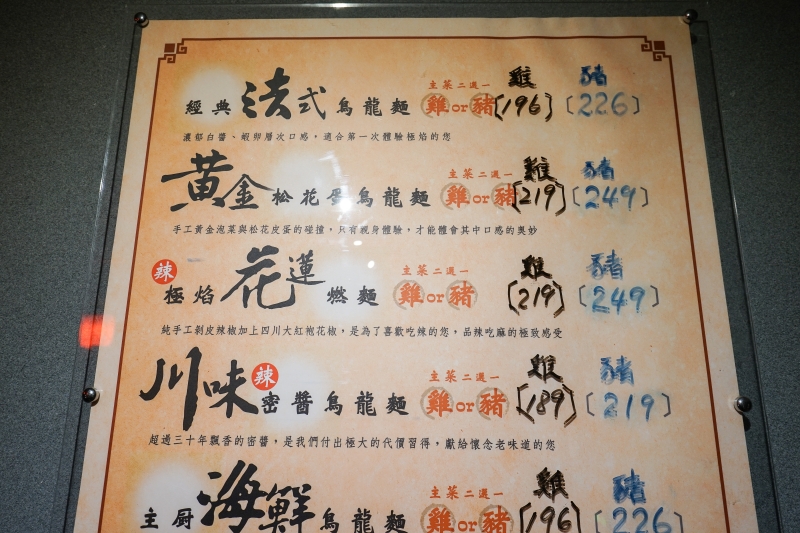 經典法式烏龍麵 主菜二選一 雞or豬 雞〔196〕 豬〔226〕
濃郁白醬、蝦卵層次口感，適合第一次體驗極焰的您
黃金松花蛋烏龍麵 主菜二選一 雞or豬 雞〔219〕 豬〔249〕
手工黃金泡菜與松花皮蛋的碰撞，只有親身體驗，才能體會其中口感的奧妙
辣 極焰花蓮燃麵 主菜二選一 雞or豬 雞〔219〕 豬〔249〕
純手工剝皮辣椒加上四川大紅袍花椒，是為了喜歡吃辣的您，品辣吃麻的極致感受
川味 辣 密醬烏龍麵 主菜二選一 雞or豬 雞〔189〕 豬〔219〕
超過三十年飄香的密醬，是我們付出極大的代價習得，獻給懷念老味道的您
主廚海鮮烏龍麵 主菜二選一 雞or豬 雞〔196〕 豬〔226〕